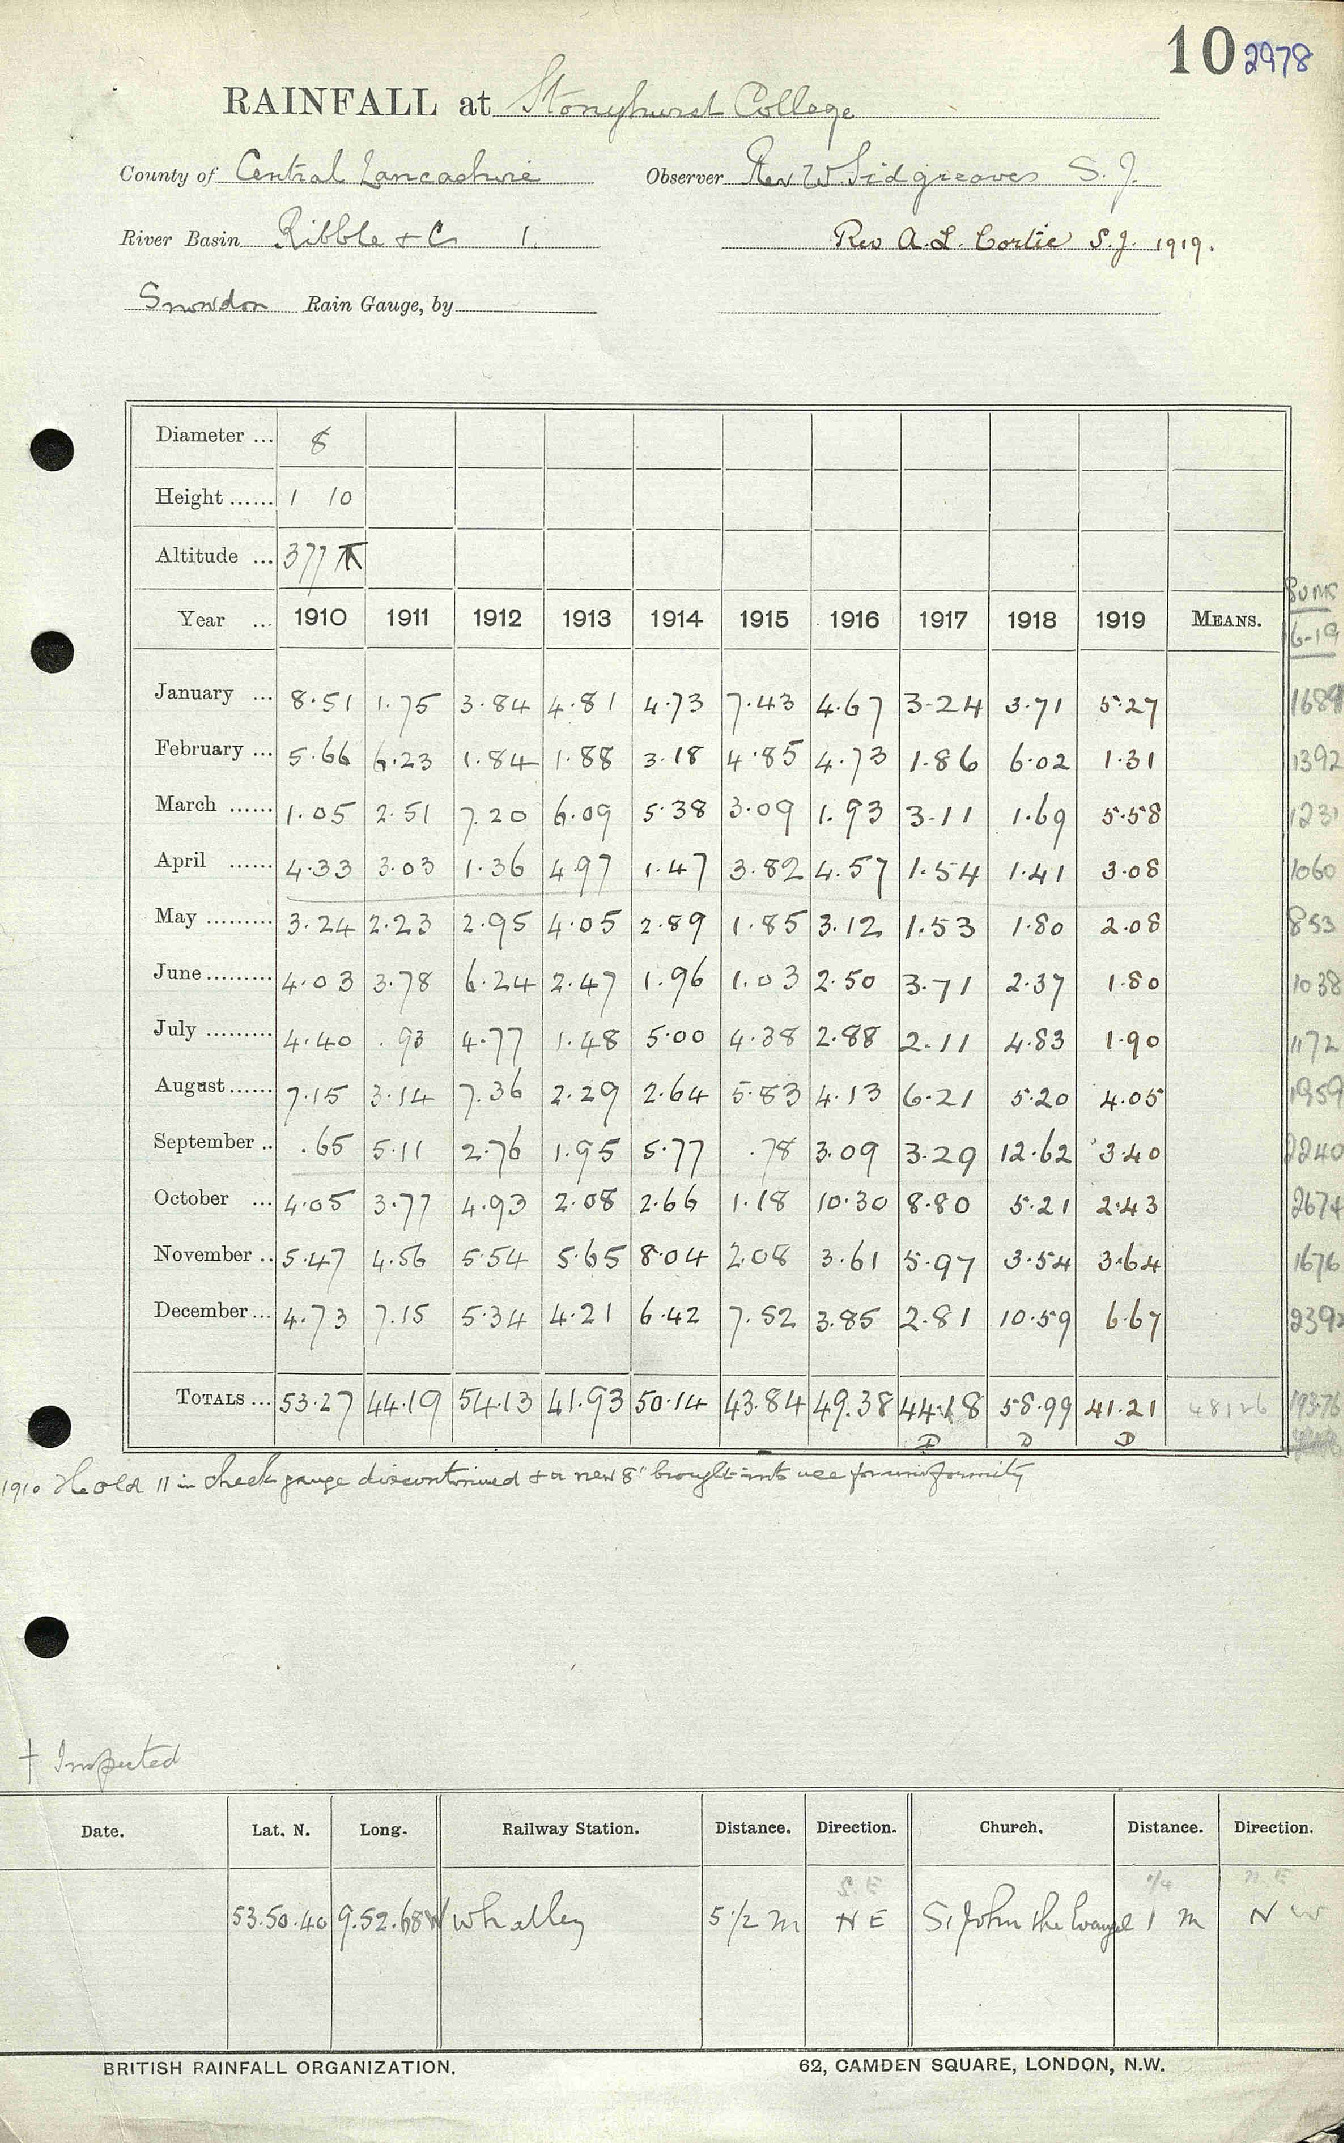 10 2978
RAINFALL at Stonyhurst College
County of Central Lancashire Observer Rev W Sidgreaves S.J.
River Basin Ribble & C 1. Rev A. L. Cortie S.J. 1919.
Snowdon Rain Gauge, by
Diameter ... 8
Height ...... 1 10
Altitude ... 377
Sums
Year ... 1910 1911 1912 1913 1914 1915 1916 1917 1918 1919 MEANS. 16-19
January ... 8.51 1.75 3.84 4.81 4.73 7.43 4.67 3.24 3.71 5.27 1689
February ... 5.66 6.23 1.84 1.88 3.18 4.85 4.73 1.86 6.02 1.31 1392
March ...... 1.05 2.51 7.20 6.09 5.38 3.09 1.93 3.11 1.69 5.58 1231
April ...... 4.33 3.03 1.36 4.97 1.47 3.82 4.57 1.54 1.41 3.08 1060
May ......... 3.24 2.23 2.95 4.05 2.89 1.85 3.12 1.53 1.80 2.08 853
June ......... 4.03 3.78 6.24 2.47 1.96 1.03 2.50 3.71 2.37 1.80 1038
July ......... 4.40 .93 4.77 1.48 5.00 4.38 2.88 2.11 4.83 1.90 1172
August ...... 7.15 3.14 7.36 2.29 2.64 5.83 4.13 6.21 5.20 4.05 1959
September .. .65 5.11 2.76 1.95 5.77 .78 3.09 3.29 12.62 3.40 2240
October ... 4.05 3.77 4.93 2.08 2.66 1.18 10.30 8.80 5.21 2.43 2674
November .. 5.47 4.56 5.54 5.65 8.04 2.08 3.61 5.97 3.54 3.64 1676
December ... 4.73 7.15 5.34 4.21 6.42 7.52 3.85 2.81 10.59 6.67 2392
TOTALS ... 53.27 44.19 54.13 41.93 50.14 43.84 49.38 44.18 58.99 41.21 48126 19376
D D D
1910 The old 11 in check gauge discontinued & a new 8" brought into use for uniformity
† Inspected
Date. Lat. N. Long. Railway Station. Distance. Direction. Church. Distance. Direction.
S.E 1/4 N E
53.50.40 9.52.68W Whalley 5 1/2 m N E St John the Evangel 1 m N W
BRITISH RAINFALL ORGANIZATION. 62, CAMDEN SQUARE, LONDON, N.W.